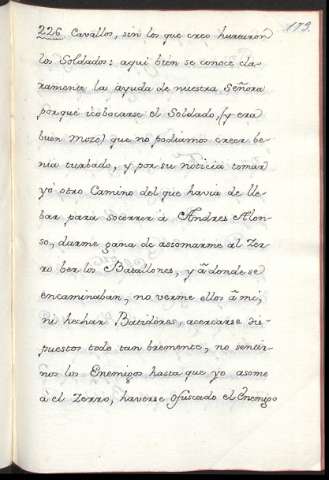 173.
226. Cavallos, sin los que creo hurtaron
los Soldados: aqui bien se conoce cla-
ramente la ayuda de nuestra Señora
porque el Soldado, (y era
buen mozo) que no podiamos creer be-
nia turbado, y por su noticia tomar
yo otro Camino del que havia de lle-
bar para socorrer à Andres Alon-
so, darme gana de assomarme al Zer-
ro ber los Batallones, y â donde se
encaminaban, no verme ellos â mi,
ni hechar Batidores, acercarse dis-
puestos todo tan bremente, no sentir-
nos los Enemigos hasta que yo asome
à el Zerro, haverse ofuscado el Enemigo